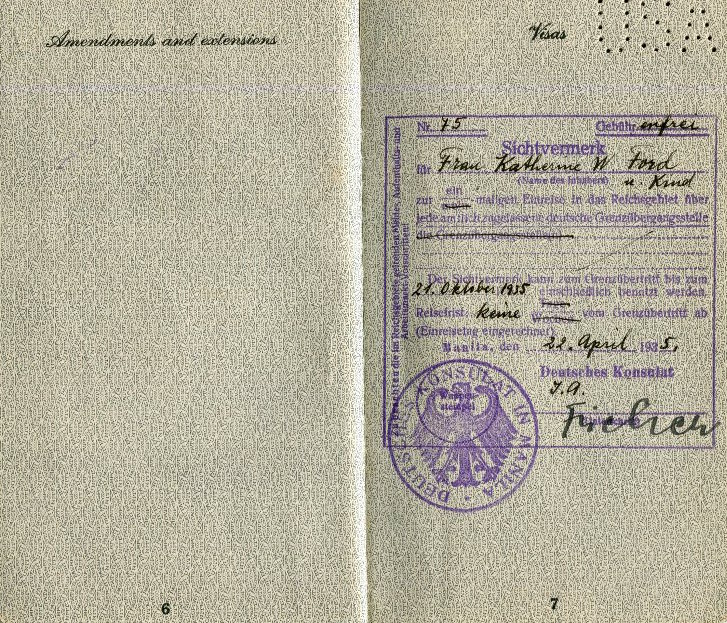 Amendments and extensions
6
Visas
USA
Nr. 75 Gebühr enfrei
Sichtvermerk
für Frau Katherine W Ford
(Name des Inhabers) u. Kind
zur ein maligen Einreise in das Reichsgebiet über
jede amtlich zugelassene deutsche Grenzübergangsstelle
die Grenzübergangsstelle(n)
Der Sichtvermerk kann zum Grenzübertritt bis zum
21. Oktober 1935 einschließlich benutzt werden.
Reisefrist: keine Wochen vom Grenzübertritt ab
(Einreisetag eingerechnet)
Manila, den 22. April 1935,
Deutsches Konsulat
I.A.
Wappenstempel
DEUTSCHES KONSULAT IN MANILA
die im Reichsgebiete geltenden Melde-, Aufenthalts- und
Arbeitsmarkt-Vorschriften!
7